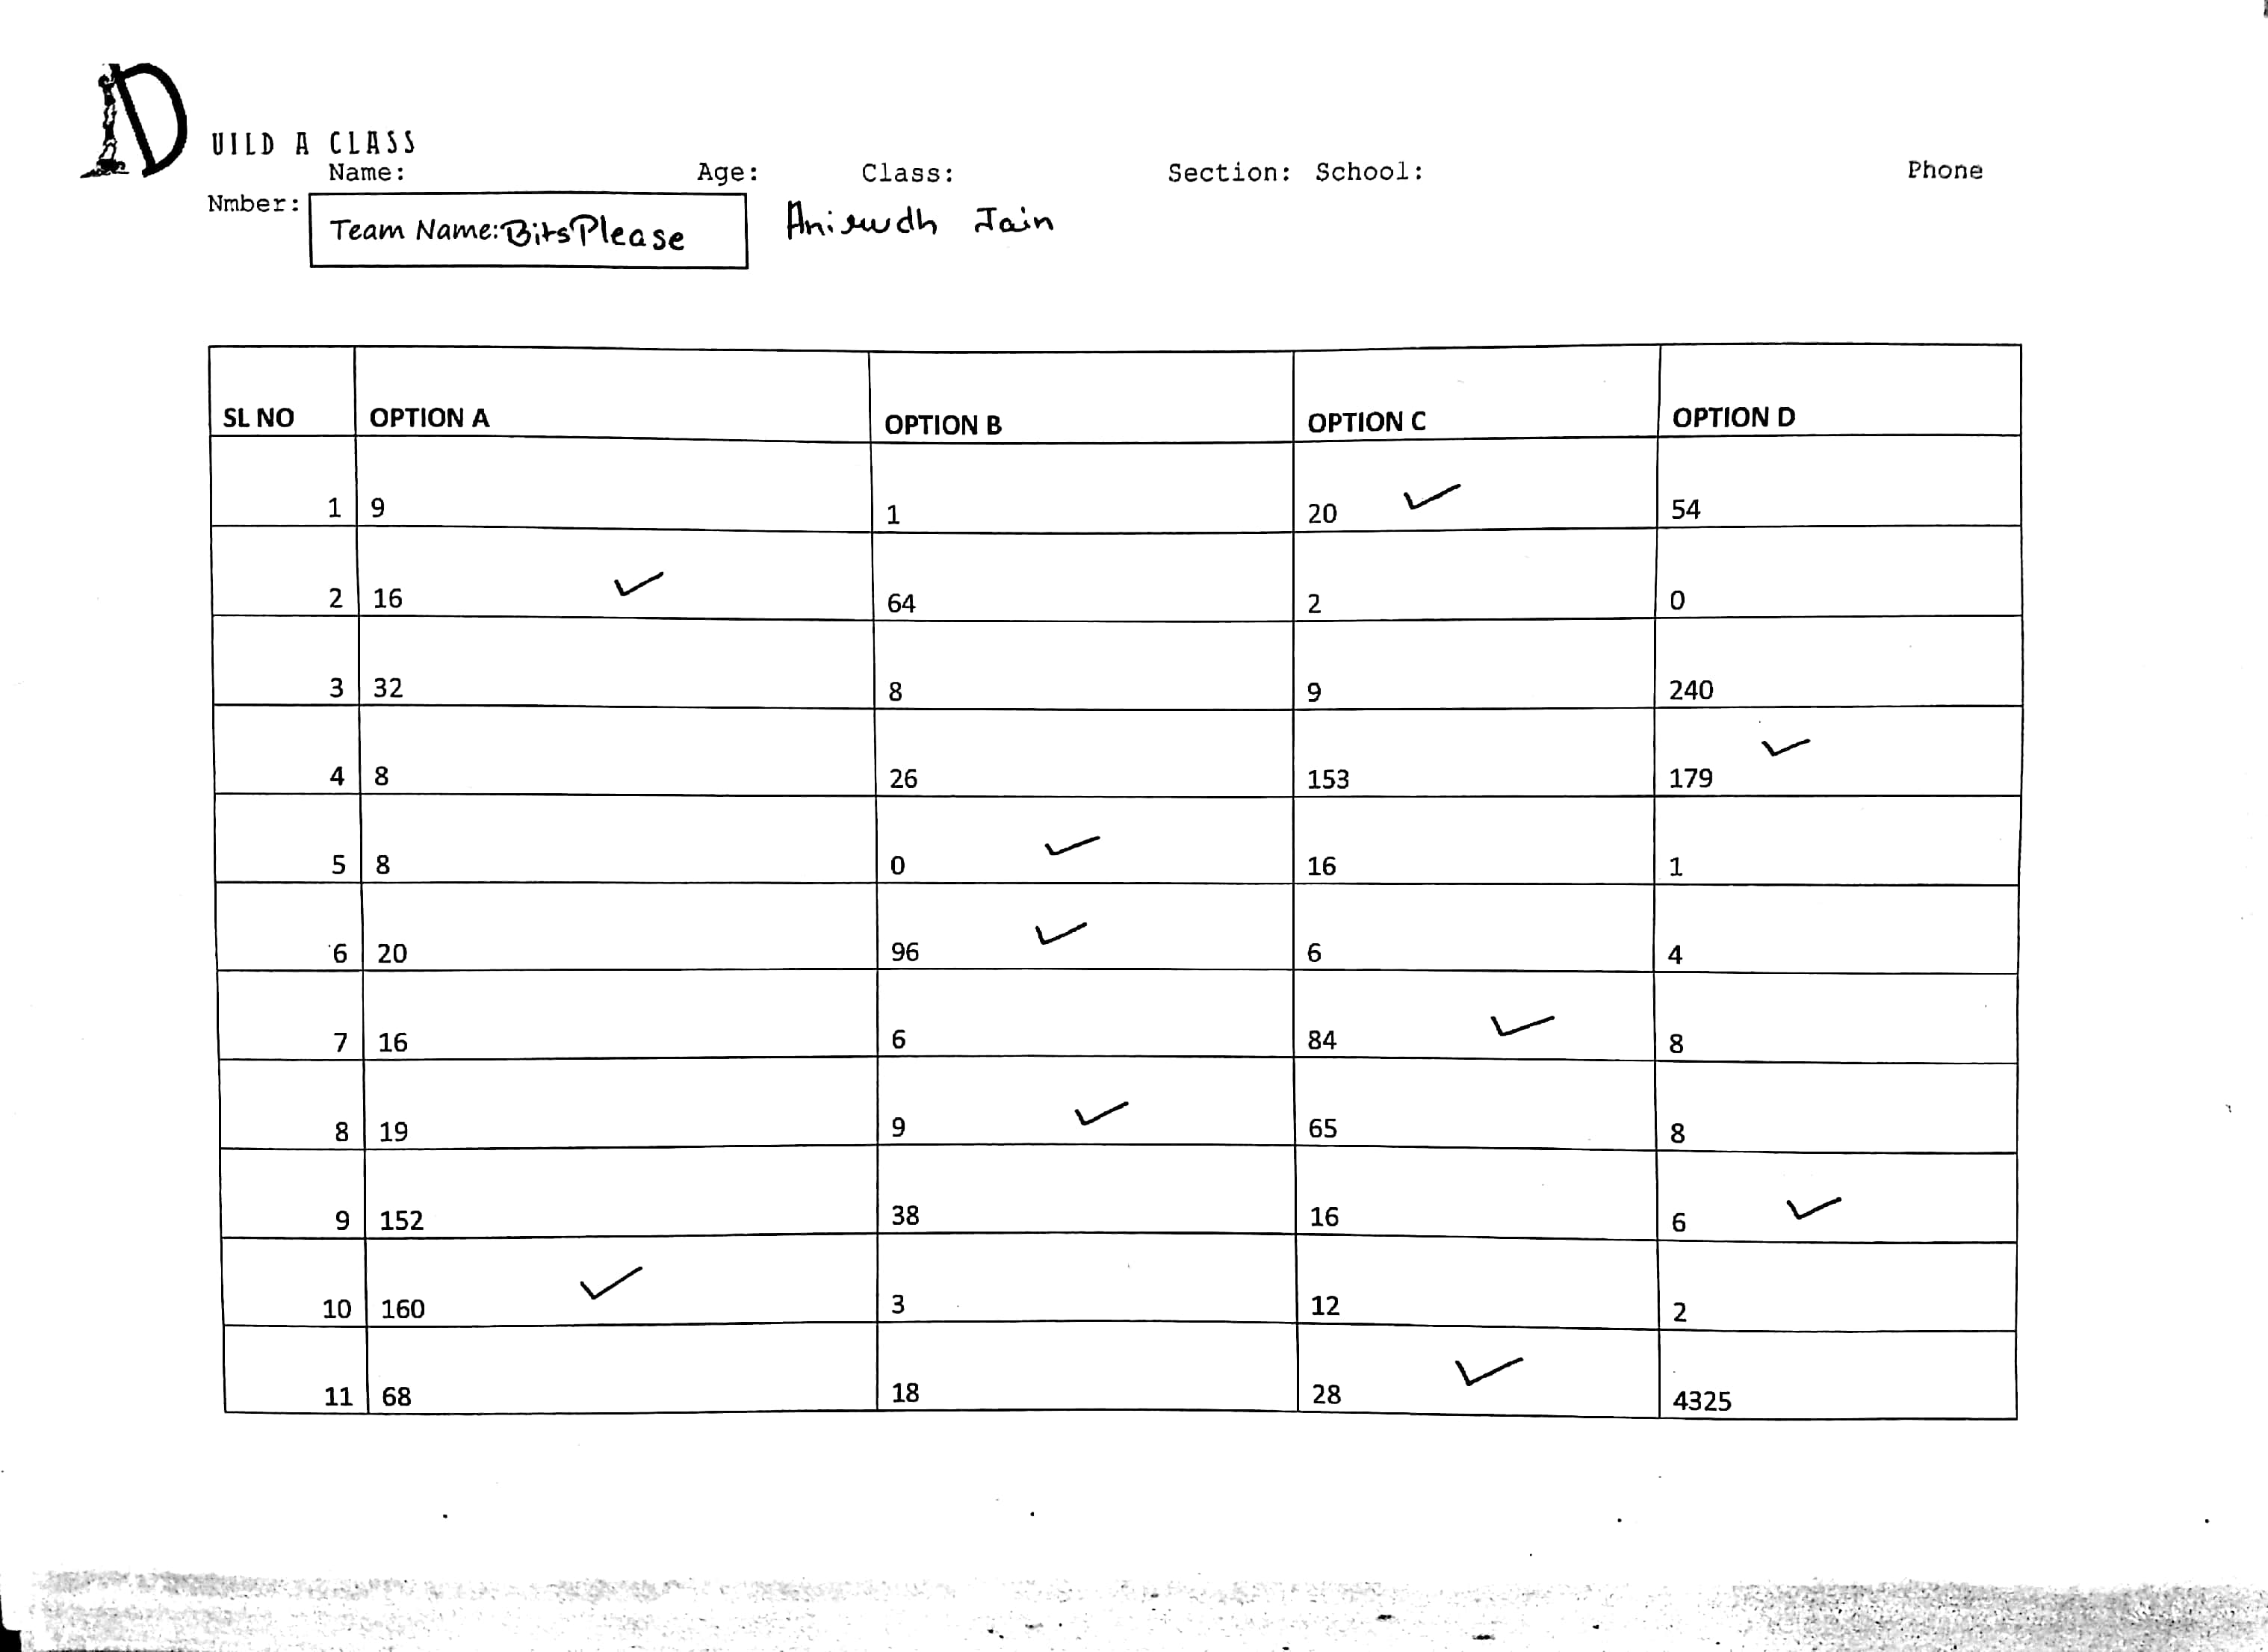 D UILD A CLASS
Name: Age: Class: Section: School: Phone
Nmber:
Team Name: BitsPlease Anirudh Jain
SL NO OPTION A OPTION B OPTION C OPTION D
1 9 1 20 ✓ 54
2 16 ✓ 64 2 0
3 32 8 9 240
4 8 26 153 179 ✓
5 8 0 ✓ 16 1
6 20 96 ✓ 6 4
7 16 6 84 ✓ 8
8 19 9 ✓ 65 8
9 152 38 16 6 ✓
10 160 ✓ 3 12 2
11 68 18 28 ✓ 4325